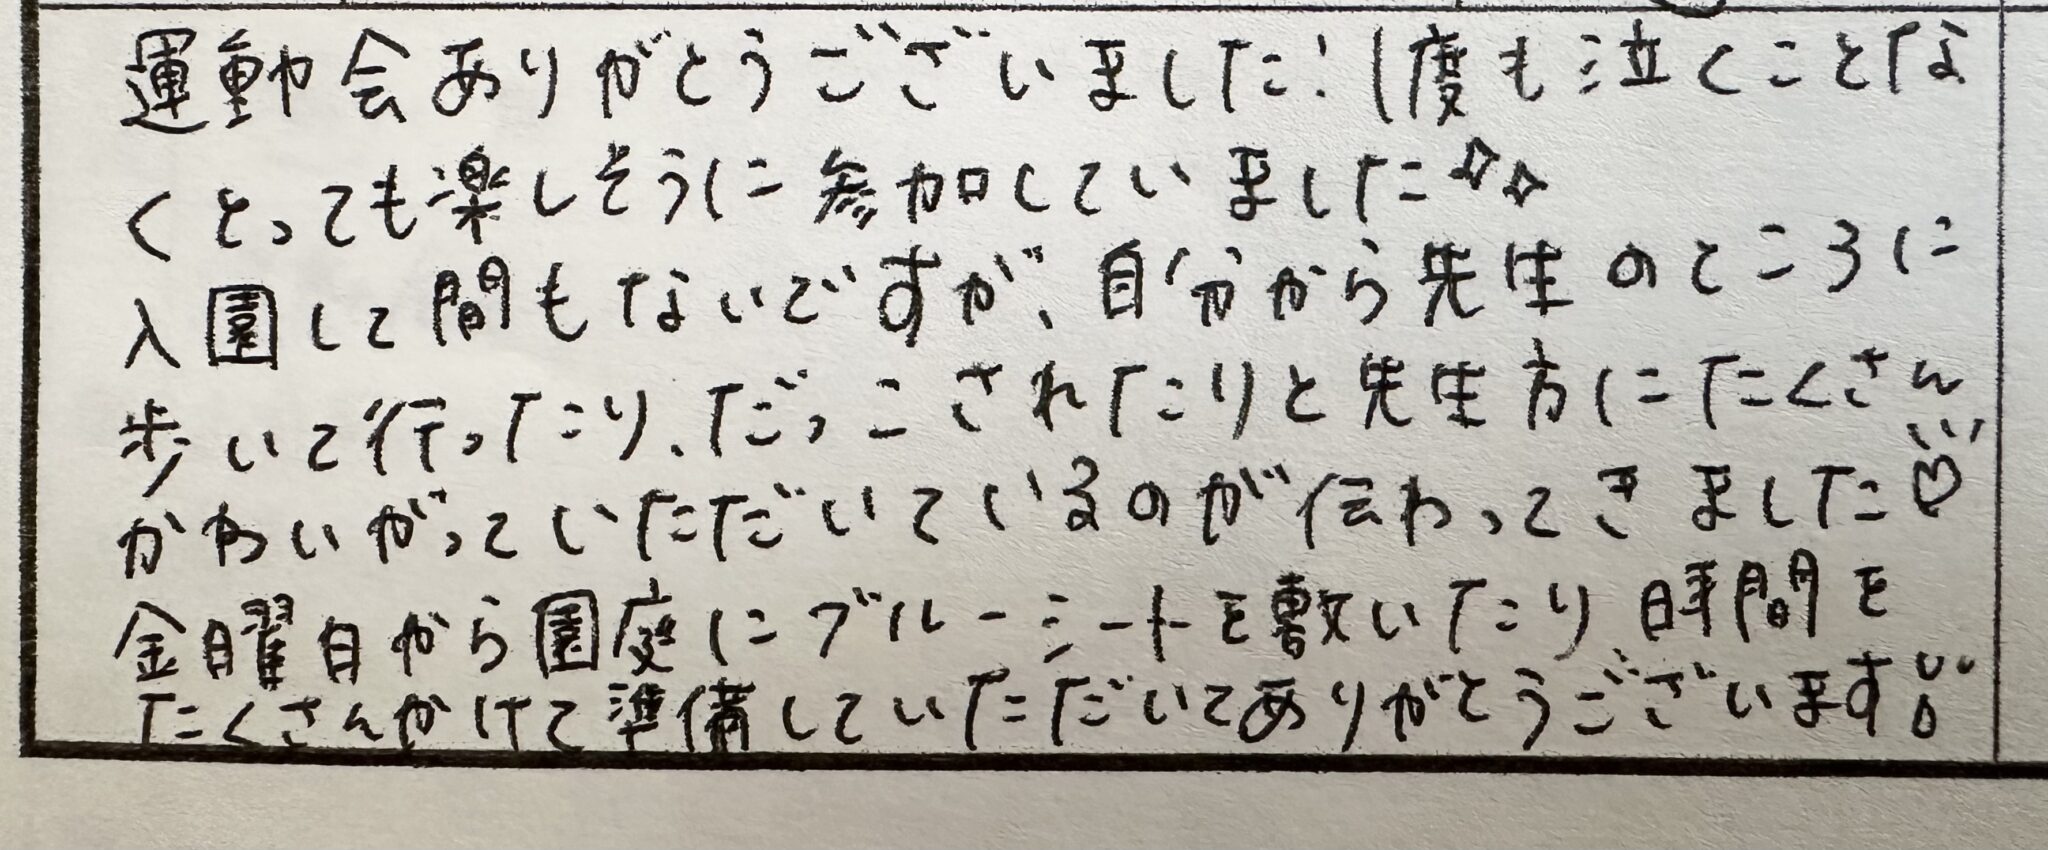 運動会ありがとうございました!1度も泣くことな
くとっても楽しそうに参加していました✧✧
入園して間もないですが、自分から先生のところに
歩いて行ったり、だっこされたりと先生方にたくさん
かわいがっていただいているのが伝わってきました♡
金曜日から園庭にブルーシートを敷いたり時間を
たくさんかけて準備していただいてありがとうございます